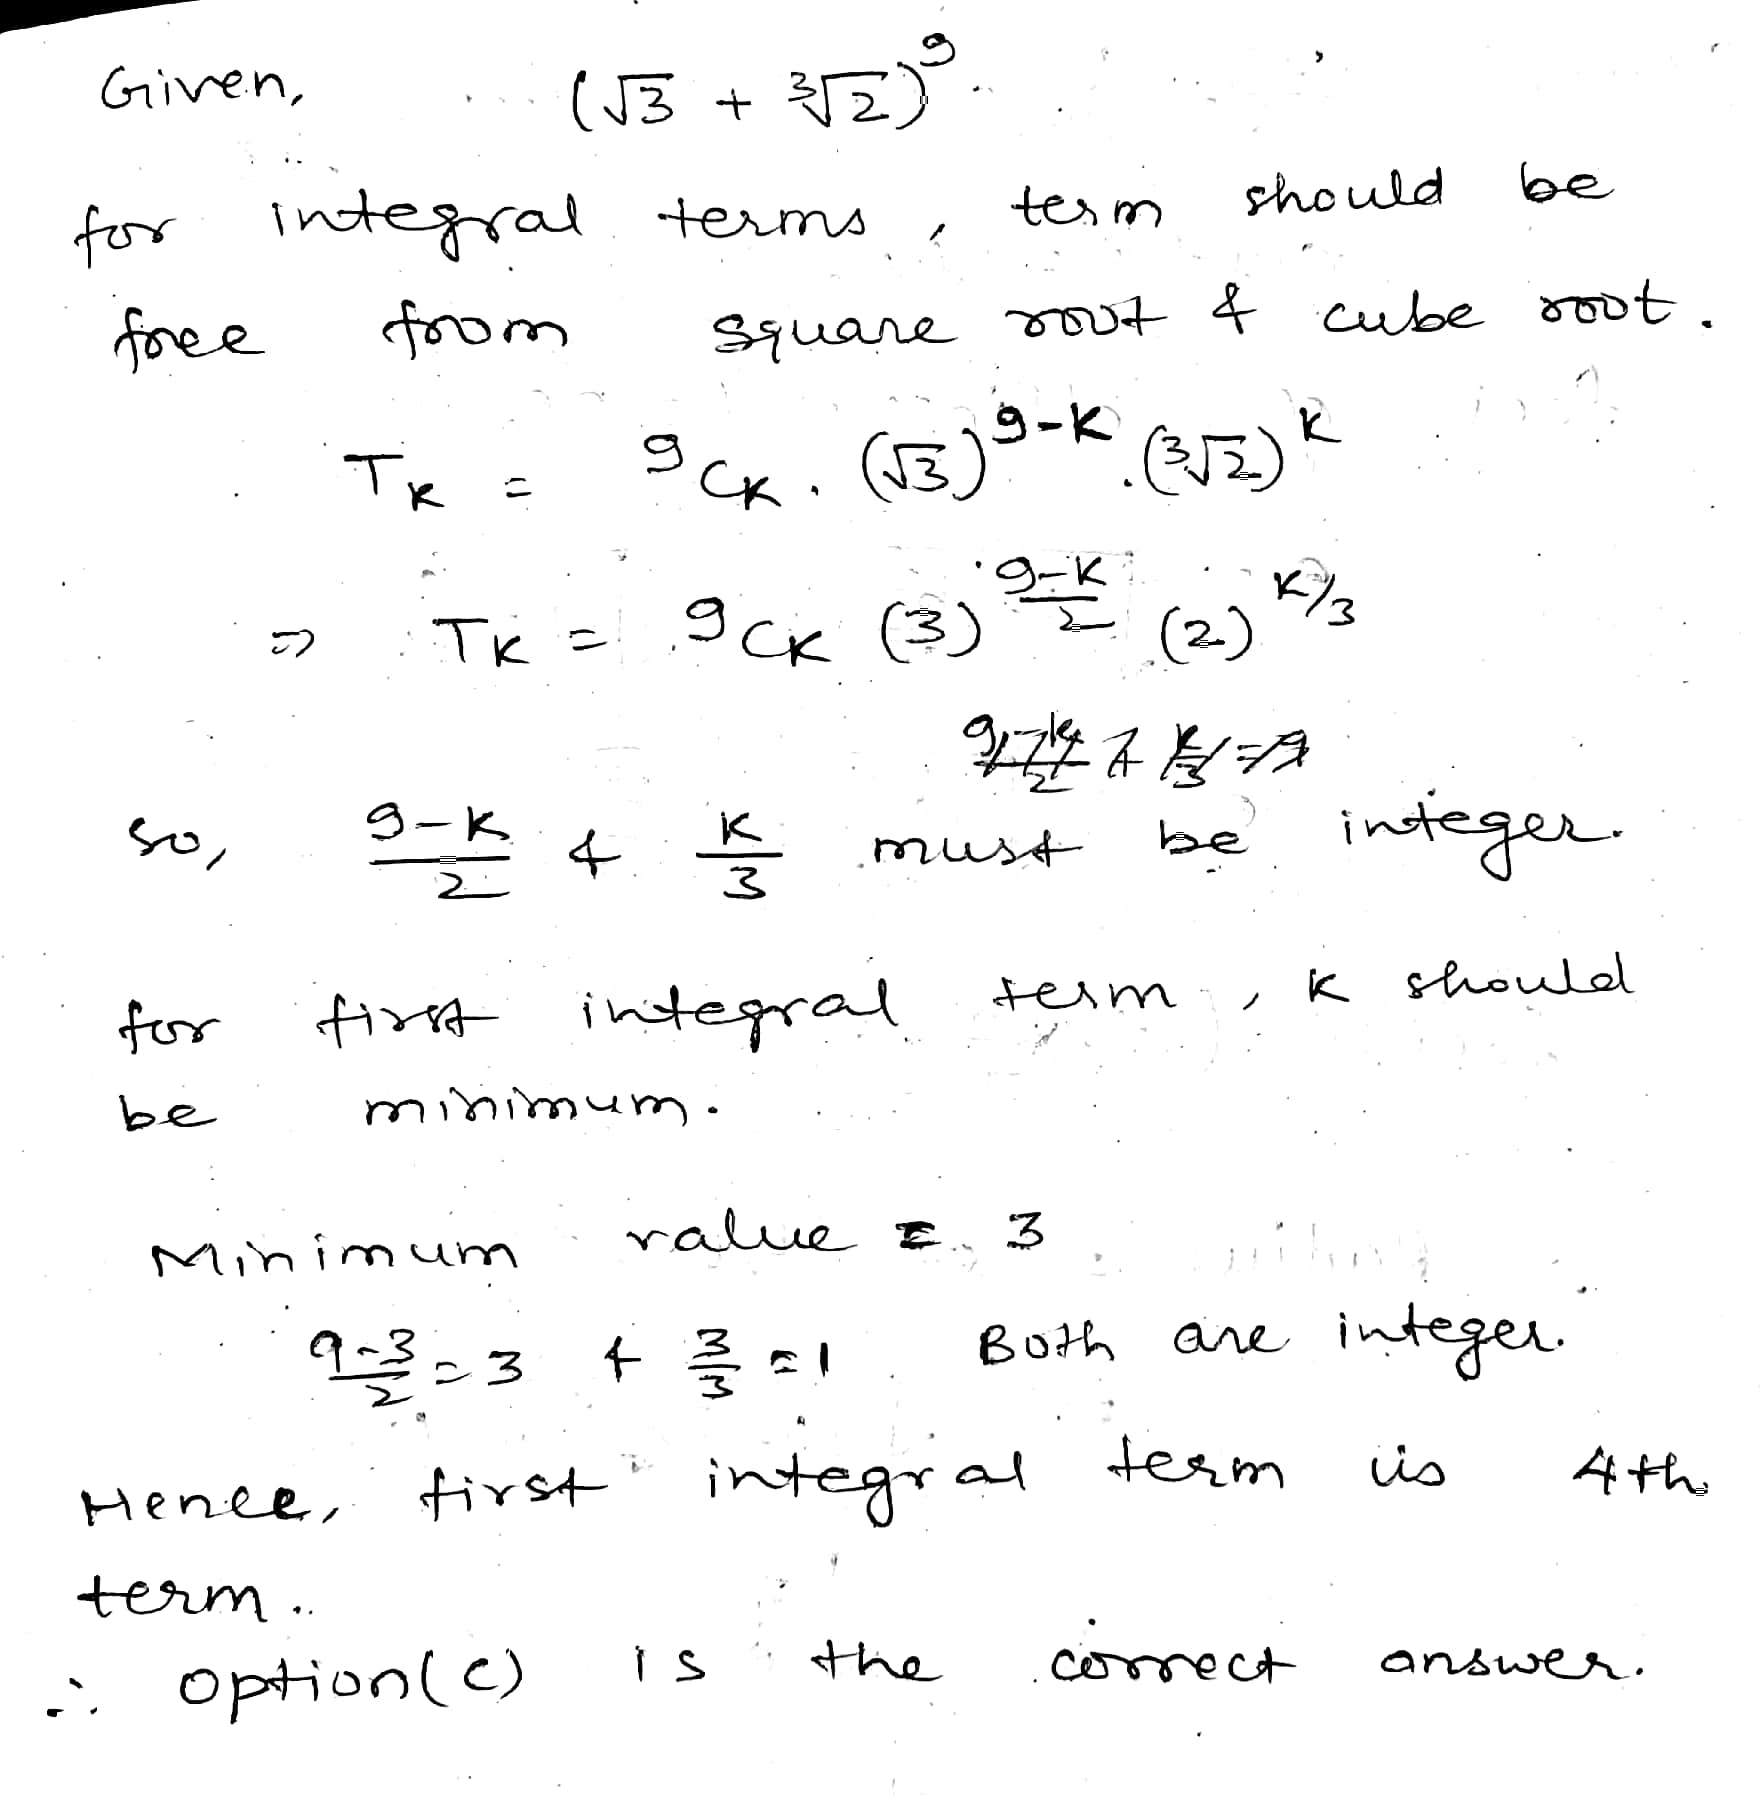 Given, (√3 + ∛2)⁹
for integral terms, term should be
free from square root & cube root.
T_K = ⁹C_K . (√3)^(9-K) . (∛2)^K
⇒ T_K = ⁹C_K (3)^((9-K)/2) (2)^(K/3)
so, (9-K)/2 & K/3 must be integer.
for first integral term, K should
be minimum.
Minimum value = 3
(9-3)/2 = 3 & 3/3 = 1 Both are integer.
Hence, first integral term is 4th
term.
∴ option(c) is the correct answer.